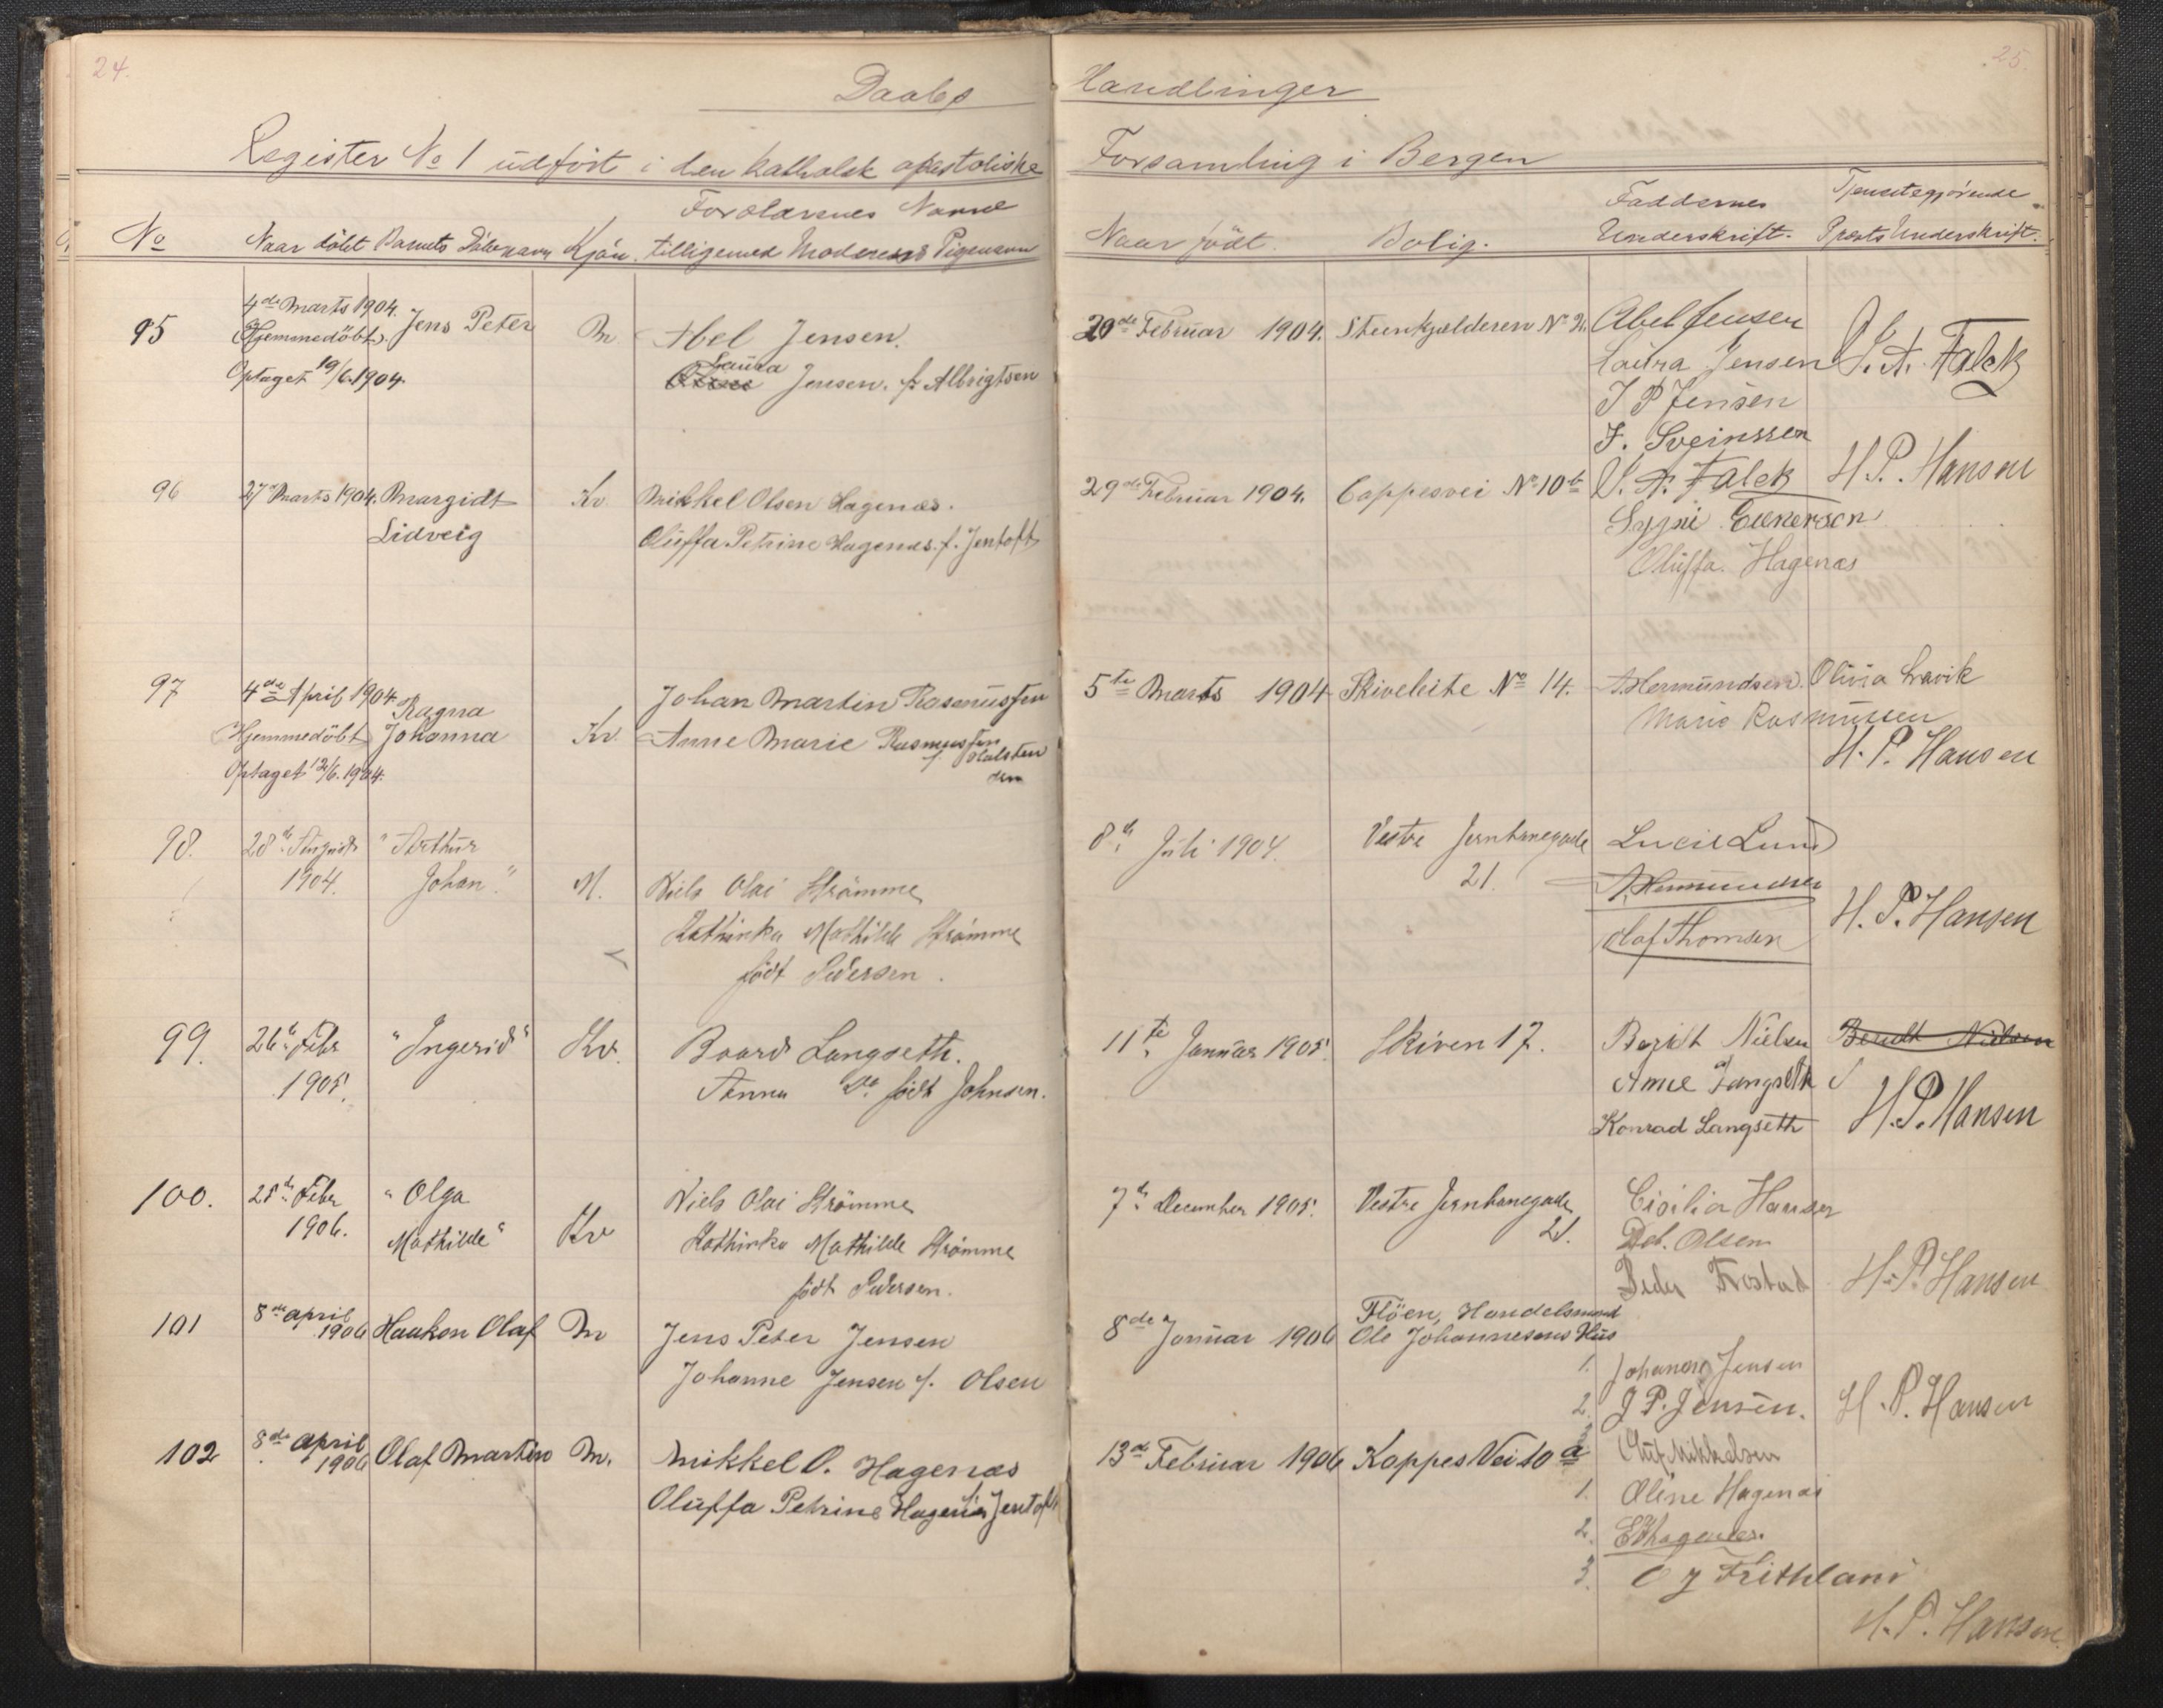 24.
25.
Daabs Handlinger
Register No 1 udfört i den katholsk apostoliske Forsamling i Bergen
No
Naar döbt
Barnets Döbenavn
Kjön.
Forældrenes Navne
tilligemed Moderens Pigenavn
Naar födt.
Bolig.
Faddernes
Underskrift.
Tjenstegjörende
Præsts Underskrift.
95
4de Marts 1904.
(Hjemmedöbt).
Optaget 19/6.1904.
Jens Peter
M.
Abel Jensen.
Laura
Jensen. f. Albrigtsen
20de Februar 1904.
Steenkjælderen No
Abel Jensen
Laura Jensen
J P Jensen
F. Sveinssen
A. Falck
96
27 Marts 1904.
Margidt
Lidveig
Kv.
Mikkel Olsen Hagenæs.
Oluffa Petrine Hagenæs. f. Jentoft
29de Februar 1904.
Cappesvei No 10b
A. Falck
Sygni
Oluffa Hagenæs
H. P. Hansen
97
4de April 1904
Hjemmedöbt
Optaget 12/6.1904.
Ragna
Johanna
Kv.
Johan Martin Rasmussen
Anne Marie Rasmussen
f.
5te Marts 1904
Skiveleite No 14.
A. Hermundsen.
Olivia Lravik
Marie Rasmussen
H. P. Hansen
98.
28de August
1904.
"Arthur
Johan."
M.
Niels Olai Strömme
Kathinka Mathilde Strömme
födt Pedersen.
8de Juli 1904.
Vestre Jernbanegade
21.
Lucie Lund
A. Hermundsen
Olaf Thomsen
H. P. Hansen
99.
26de Febr
1905.
"Ingerid"
Kv.
Baard Langseth.
Anna Do födt Johnsen.
11te Januar 1905.
Skiven 17.
Berndt Nielsen
Anne Langseth
Konrad Langseth
Berndt Nielsen
H. P. Hansen
100.
25de Febr
1906.
"Olga
Mathilde"
Kv
Niels Olai Strömme
Kathinka Mathilde Strömme
födt Pedersen.
7de December 1905.
Vestre Jernbanegade
21.
Cicilia Hansen
Dob. Olsen
Peder Frostad
H. P. Hansen
101
8de april
1906
Haakon Olaf
M
Jens Peter Jensen
Johanne Jensen f. Olsen
8de Januar 1906
Flöen, Handelsmand
Ole Johannesens Hus
1. Johanne Jensen
2. J P. Jensen.
3. Mikkelsen
H. P. Hansen
102
8de april
1906
Olaf Martin
M.
Mikkel O. Hagenæs
Oluffa Petrine Hagenæs f. Jentoft
13de Februar 1906
Kappes Vei 10 a
1. Oline Hagenæs
2. Hagenæs.
3. O J Frithland
H. P. Hansen